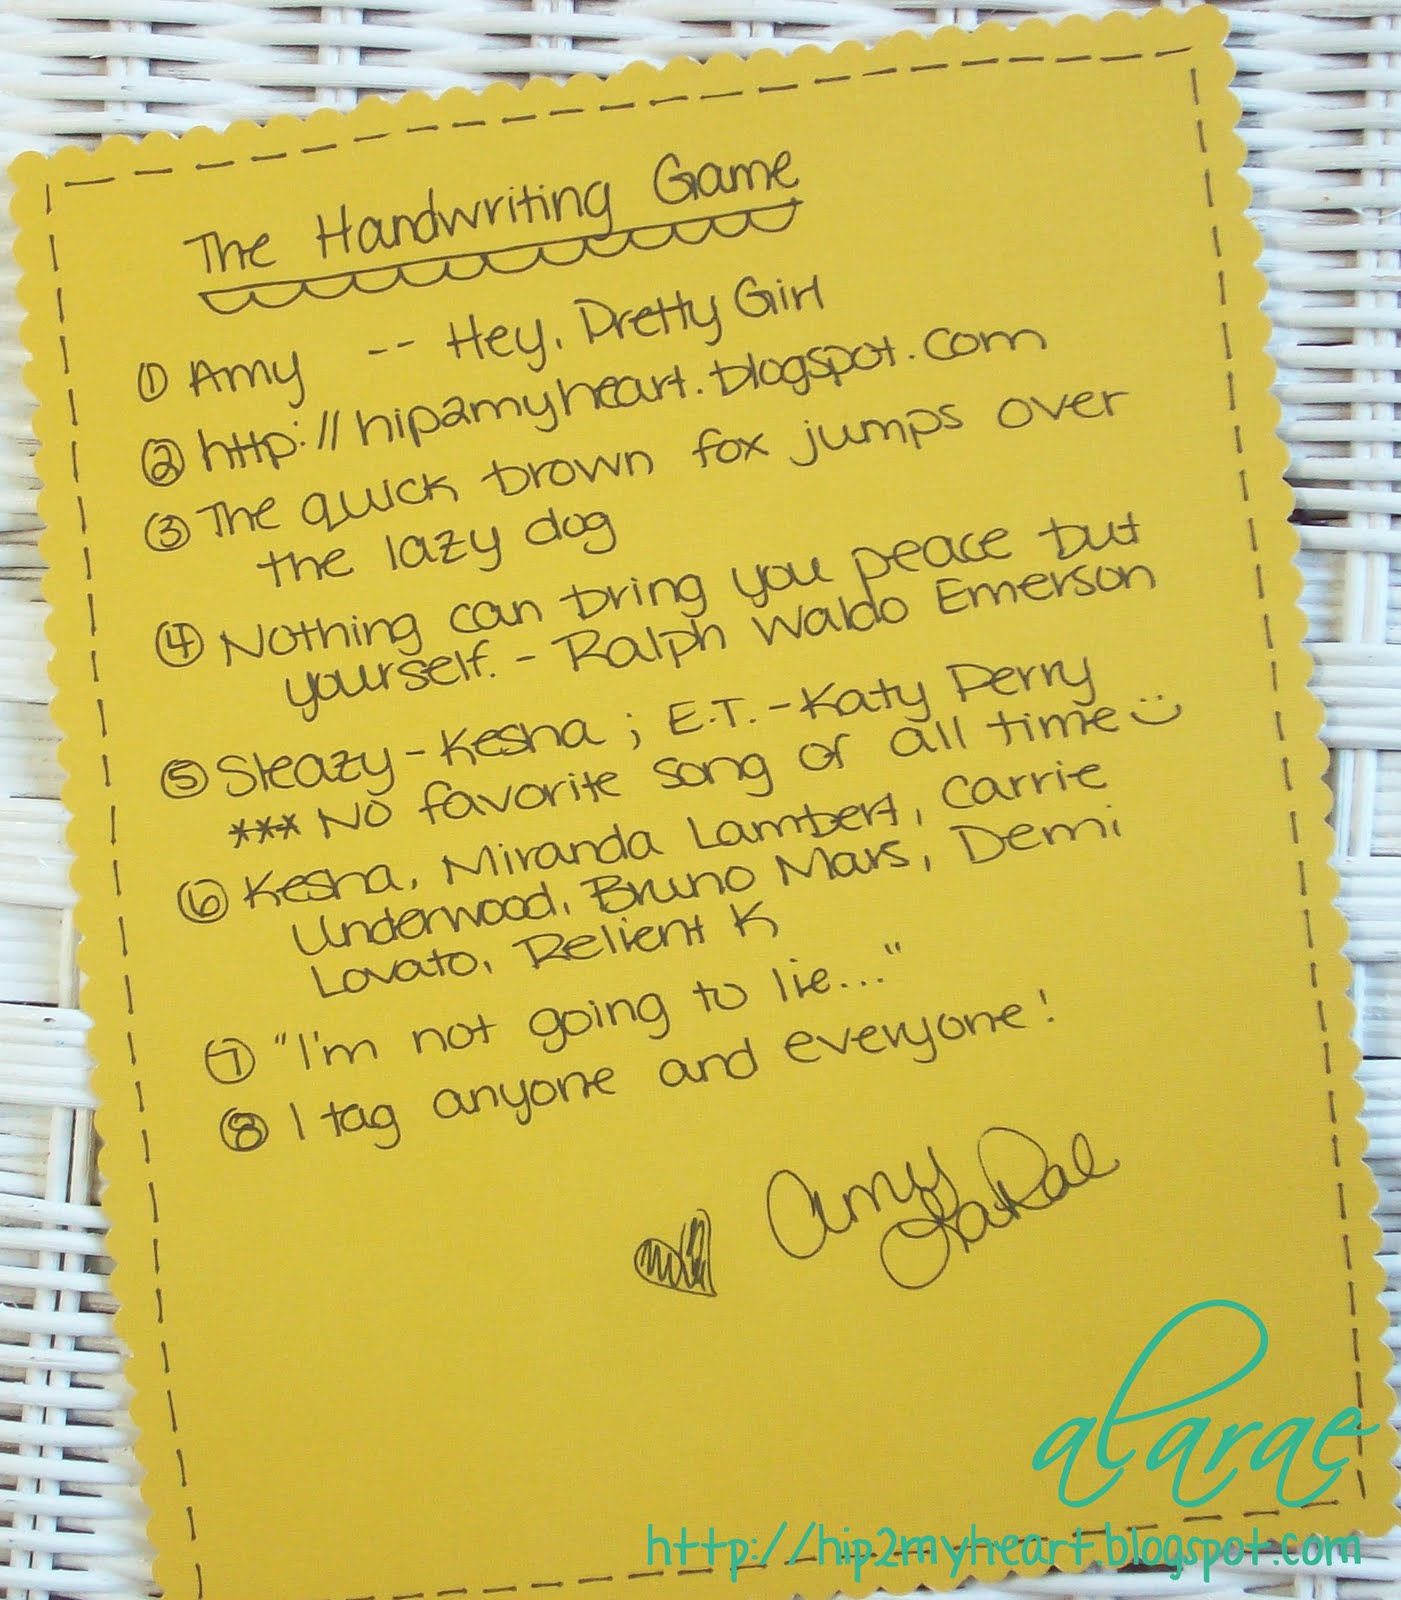 The Handwriting Game
① Amy -- Hey, Pretty Girl
② http://hip2myheart.blogspot.com
③ The quick brown fox jumps over
the lazy dog
④ Nothing can bring you peace but
yourself. - Ralph Waldo Emerson
⑤ Sleazy - Kesha ; E.T. - Katy Perry
*** No favorite song of all time :)
⑥ Kesha, Miranda Lambert, Carrie
Underwood, Bruno Mars, Demi
Lovato, Relient K
⑦ "I'm not going to lie..."
⑧ I tag anyone and everyone!
Amy
LaRae
alarae
http://hip2myheart.blogspot.com